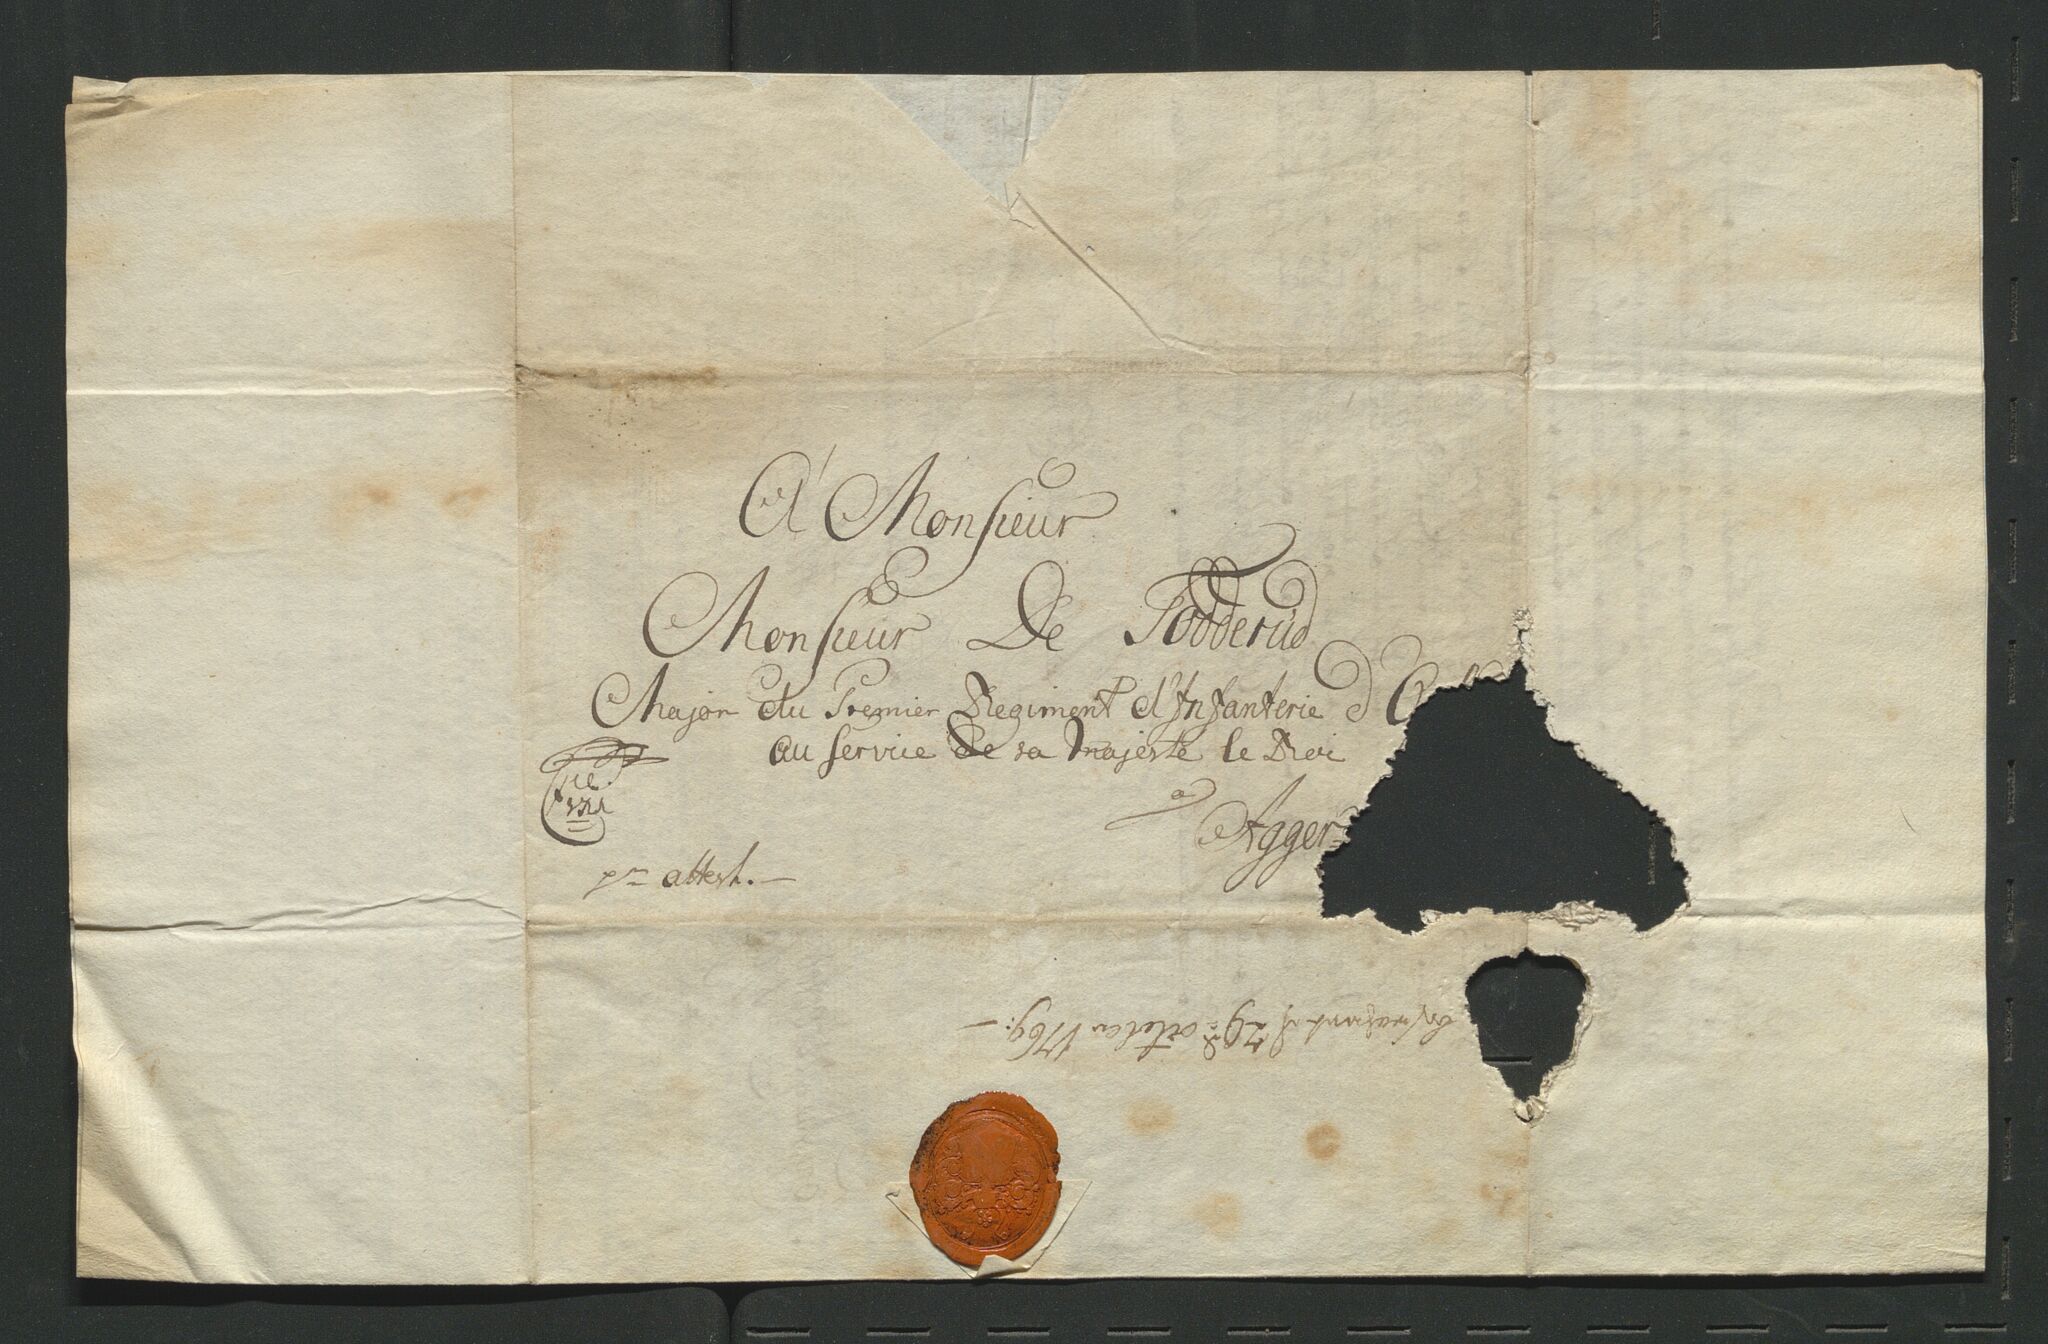 A Monsieur
Monsieur De Todderud
Major du Premier Regiment d'Infanterie d'
au service de sa majesté le Roi
a
Agger
pr attest.
29de october 1769.